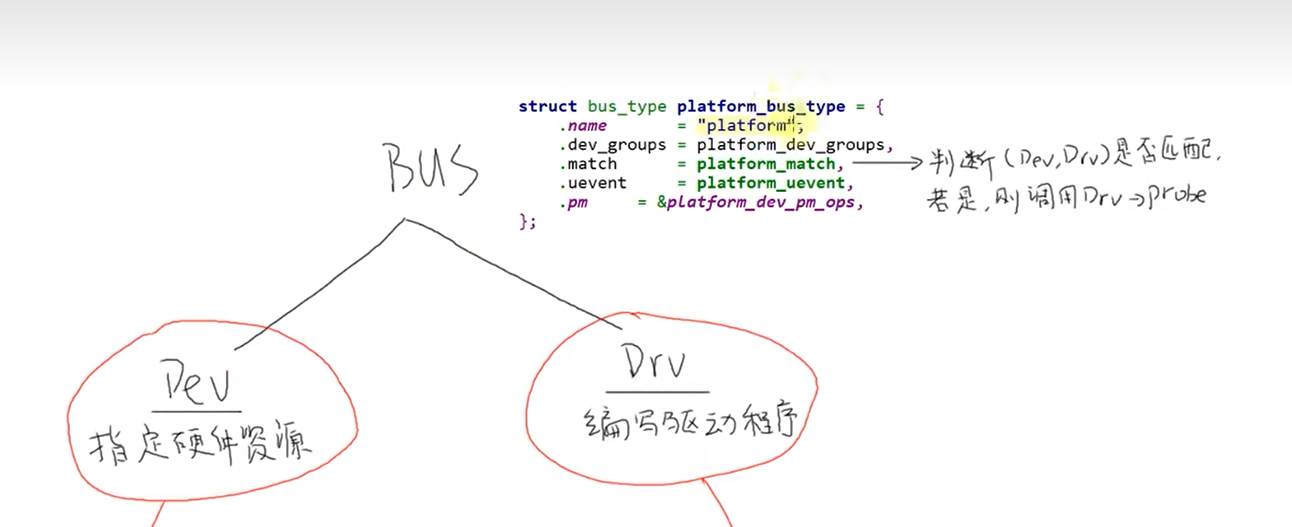 struct bus_type platform_bus_type = {
.name = "platform",
.dev_groups = platform_dev_groups,
.match = platform_match,
.uevent = platform_uevent,
.pm = &platform_dev_pm_ops,
};
判断(Dev,Drv)是否匹配,
若是,则调用Drv→probe
BUS
Dev
指定硬件资源
Drv
编写驱动程序